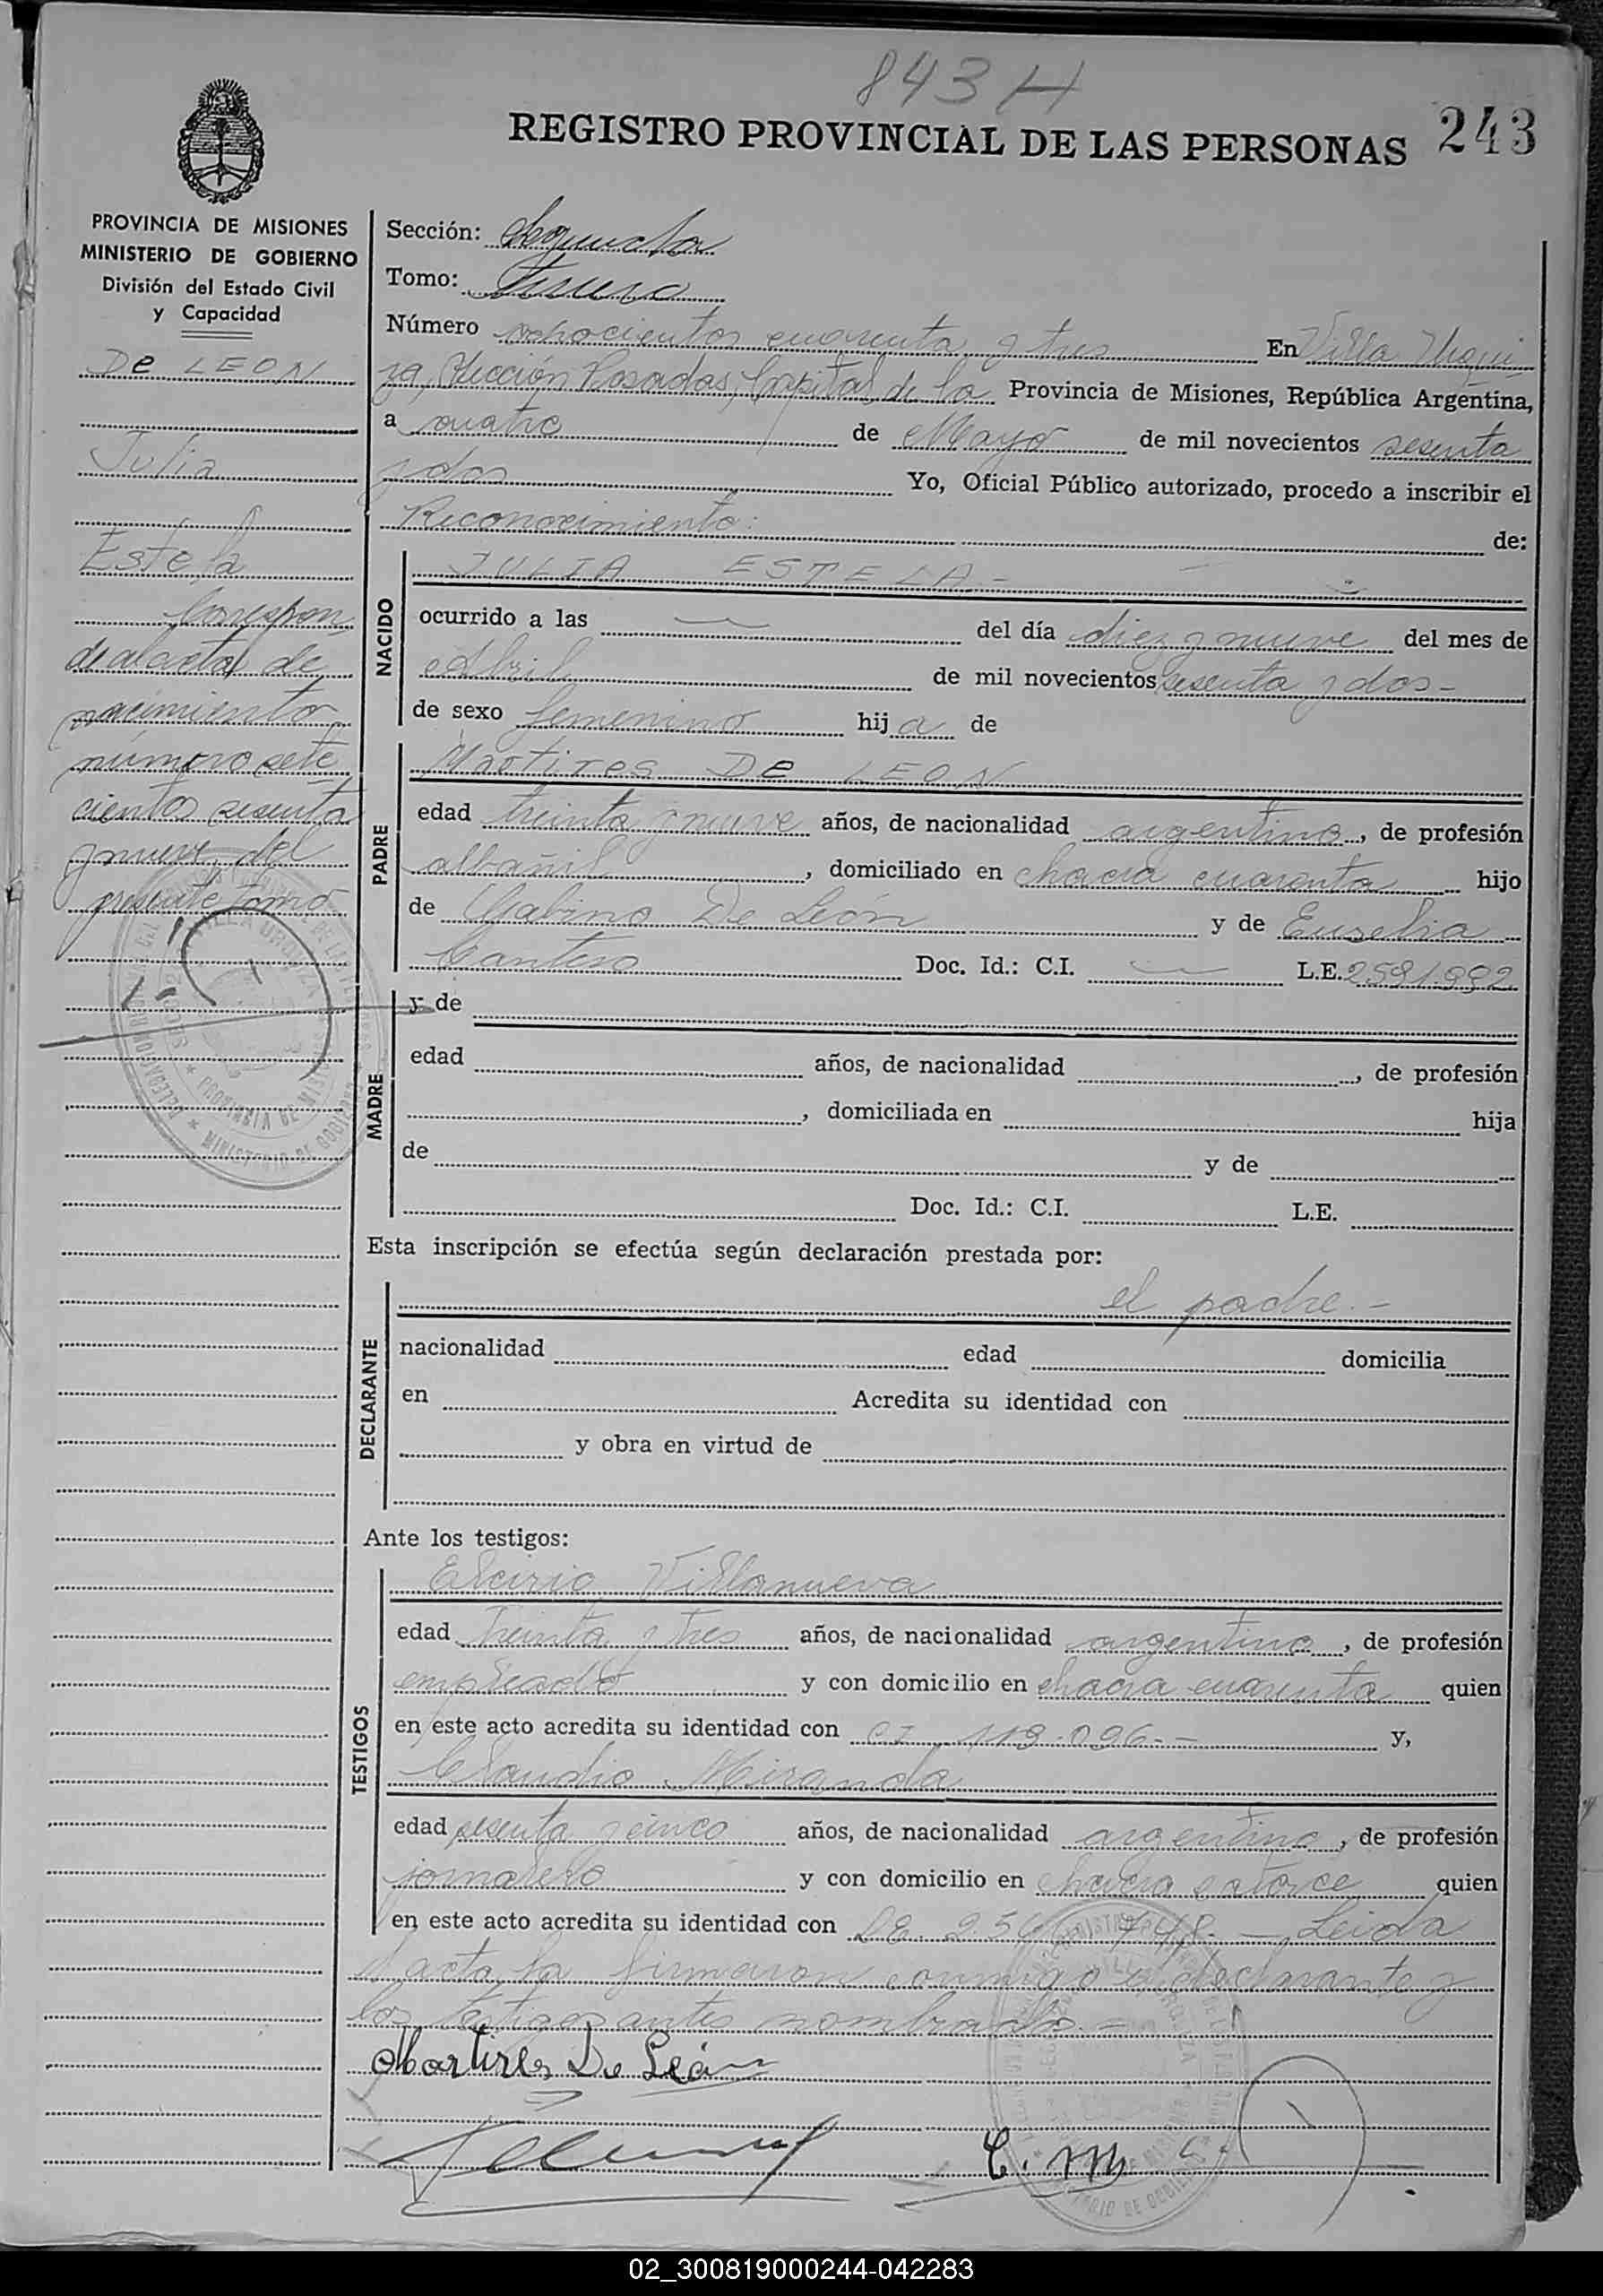 843 H
REGISTRO PROVINCIAL DE LAS PERSONAS 243
PROVINCIA DE MISIONES
MINISTERIO DE GOBIERNO
División del Estado Civil
y Capacidad
De LEON
Julia
Estela
Correspon
de al acta de
nacimiento
número sete
cientos sesenta
y nueve del
presente tomo
Sección: Segunda
Tomo: Primero
Número ochocientos cuarenta y tres En Villa Urqui
za, Sección Posadas, Capital de la Provincia de Misiones, República Argentina,
a cuatro de Mayo de mil novecientos sesenta
y dos Yo, Oficial Público autorizado, procedo a inscribir el
Reconocimiento: de:
NACIDO
JULIA ESTELA -
ocurrido a las — del día diez y nueve del mes de
Abril de mil novecientos sesenta y dos -
de sexo femenino hija de
PADRE
Martires De LEON
edad treinta y nueve años, de nacionalidad argentina, de profesión
albañil, domiciliado en chacra cuarenta hijo
de Gabino De León y de Eusebia
Cantero Doc. Id.: C.I. — L.E. 2591.992
MADRE
y de
edad años, de nacionalidad , de profesión
, domiciliada en hija
de y de
Doc. Id.: C.I. L.E.
Esta inscripción se efectúa según declaración prestada por:
DECLARANTE
el padre. -
nacionalidad edad domicilia
en Acredita su identidad con
y obra en virtud de
Ante los testigos:
TESTIGOS
Elcirio Villanueva
edad treinta y tres años, de nacionalidad argentina, de profesión
empleado y con domicilio en chacra cuarenta quien
en este acto acredita su identidad con CI 119.096. - y,
Claudio Miranda
edad sesenta y cinco años, de nacionalidad argentina, de profesión
jornalero y con domicilio en chacra catorce quien
en este acto acredita su identidad con LE. - Leida
el acta la firmaron conmigo el declarante y
los testigos antes nombrados. -
Martires De León
C. M.
02_300819000244-042283